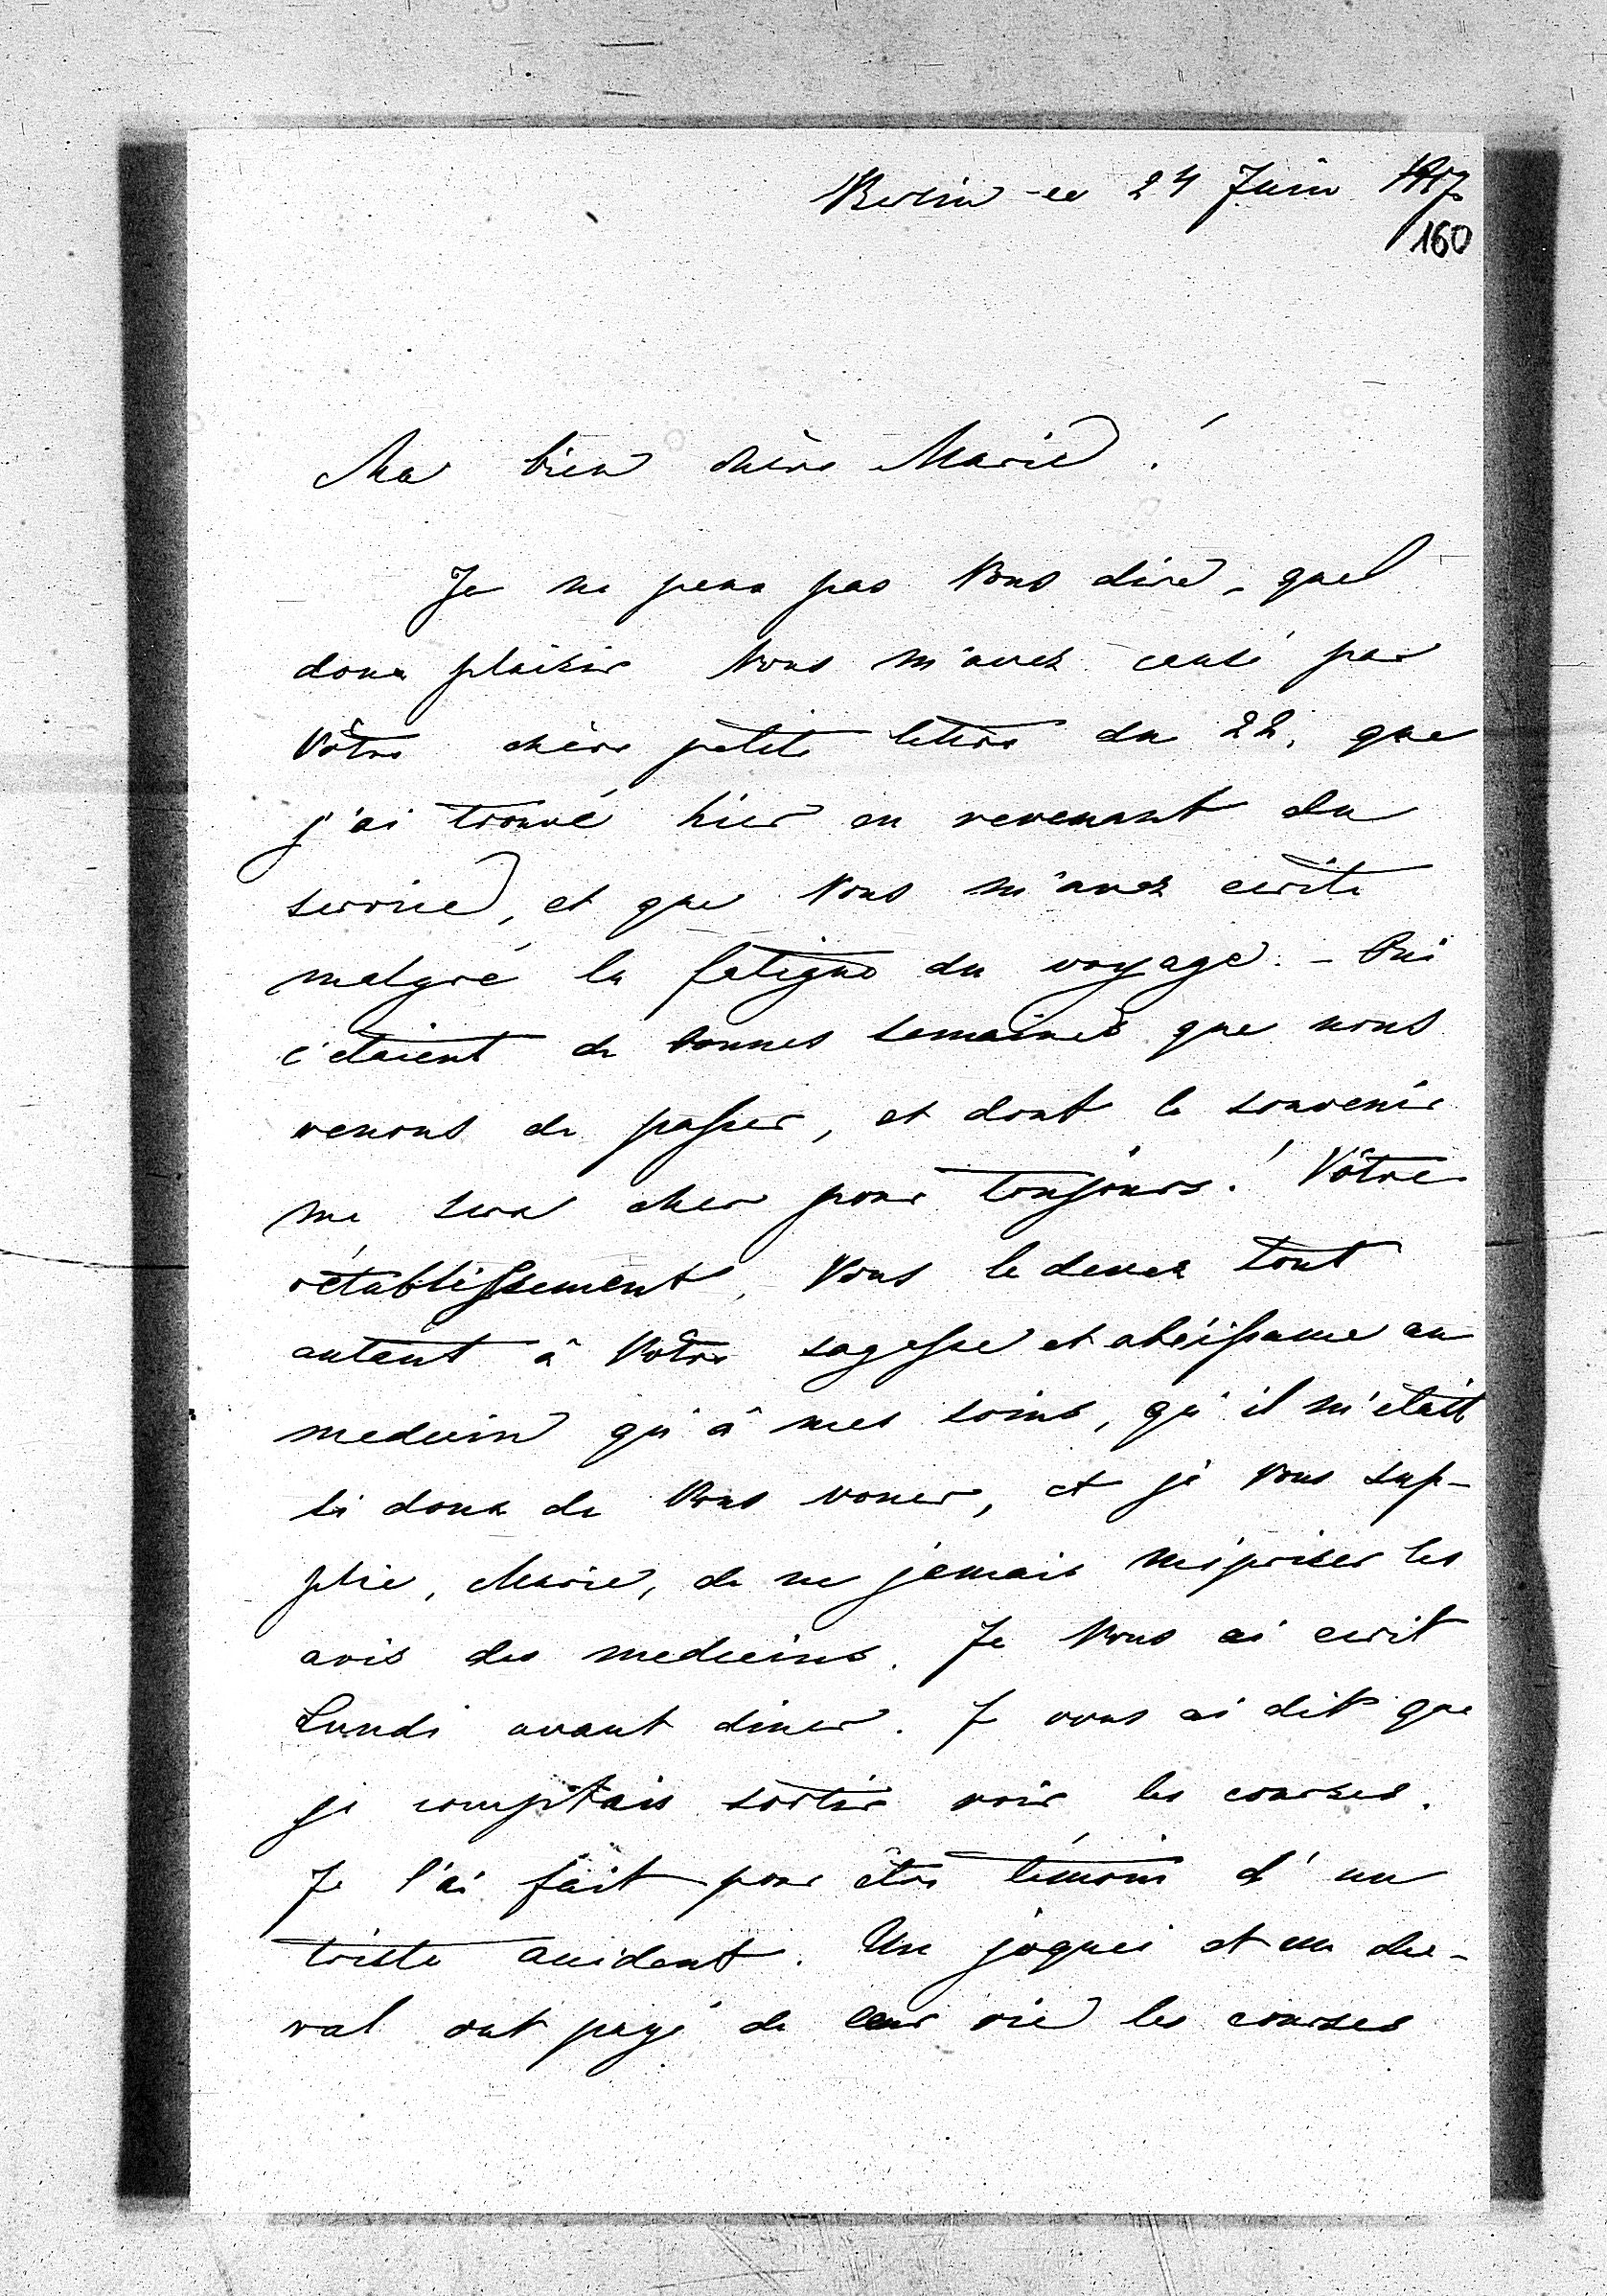 Berlin ce 24 Juin
160
Ma bien chère Marie!
Je ne peux pas Vous dire, quel
doux plaisir Vous m'avez causé par
Vôtre chère petite lettre du 22, que
j'ai trouvé hier en revenant du
service, et que Vous m'avez ecrite
malgré la fatigue du voyage. - Oui
c'etaient de bonnes semaines que nous
venons de passer, et dont le souvenir
me sera cher pour toujours! Vôtre
rétablissement, Vous le devez tout
autant à Vôtre sagesse et obéissance au
medecin qu'à mes soins, qu'il m'était
si doux de Vous vouer, et je Vous sup-
plie, Marie, de ne jamais mépriser les
avis des medecins. Je Vous ai ecrit
Lundi avant diner. Je vous ai dit que
je comptais sortir voir les courses.
Je l'ai fait pour être témoin d'un
triste accident. Un joquei et un che-
val ont payé de leur vie les courses